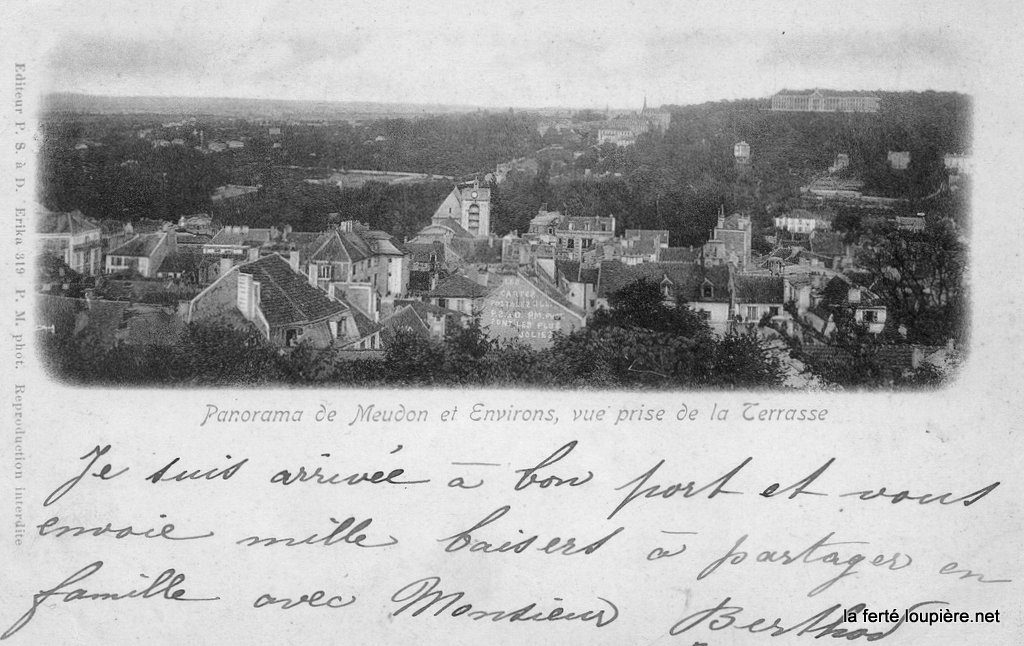 LES
CARTES
POSTALES ILL
P.S. à D. P.M. phot
SONT LES PLUS
JOLIES
Panorama de Meudon et Environs, vue prise de la Terrasse
Je suis arrivée à bon port et vous
envoie mille baisers à partager en
famille avec Monsieur Berthod
Editeur P. S. à D. Erika 319 P. M. phot. Reproduction interdite
la ferté loupière.net